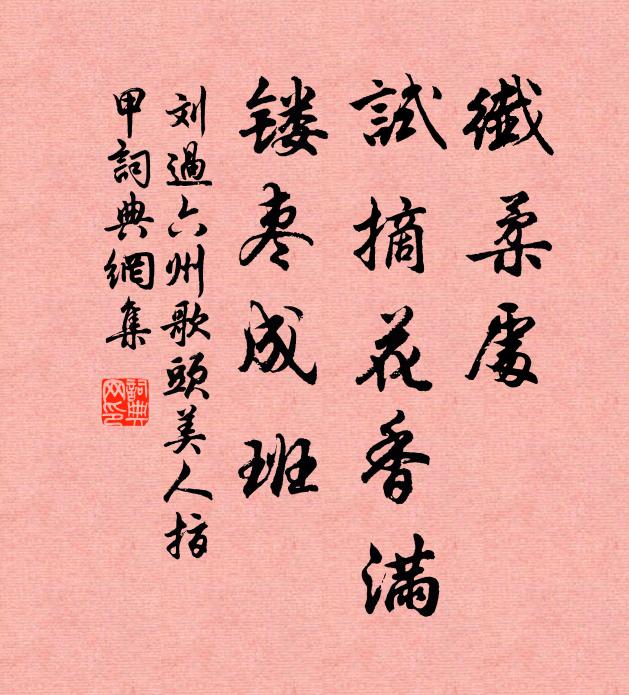 纖柔處
試摘花香滿
镂枣成班
刘過六州歌頭美人指
甲詞典網集
詞典網印